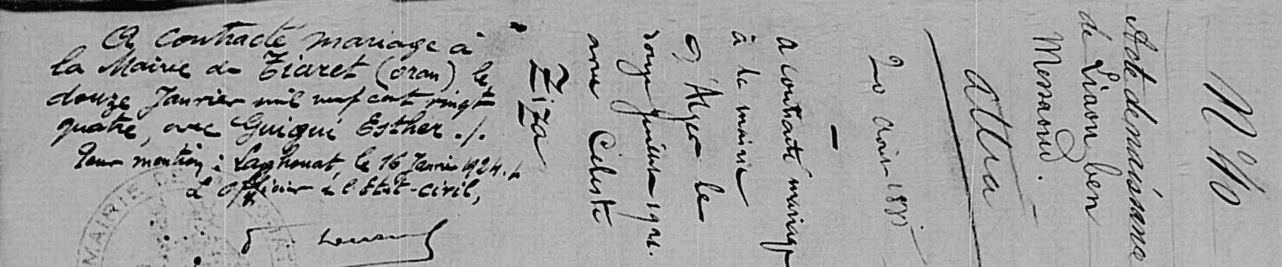 N° 40
Acte de naissance
de Liaou ben
Menaoud.
Attia
20 août 1885
—
a contracté mariage
à la mairie
d'Alger le
douze juillet 1921.
avec Céleste
Ziza
A contracté mariage à
la Mairie de Tiaret (Oran) le
douze Janvier mil neuf cent vingt
quatre, avec Guigui Esther ./.
Pour mention, Laghouat, le 16 Janvier 1924 ./.
L'officier de l'Etat-civil,
MAIRIE DE